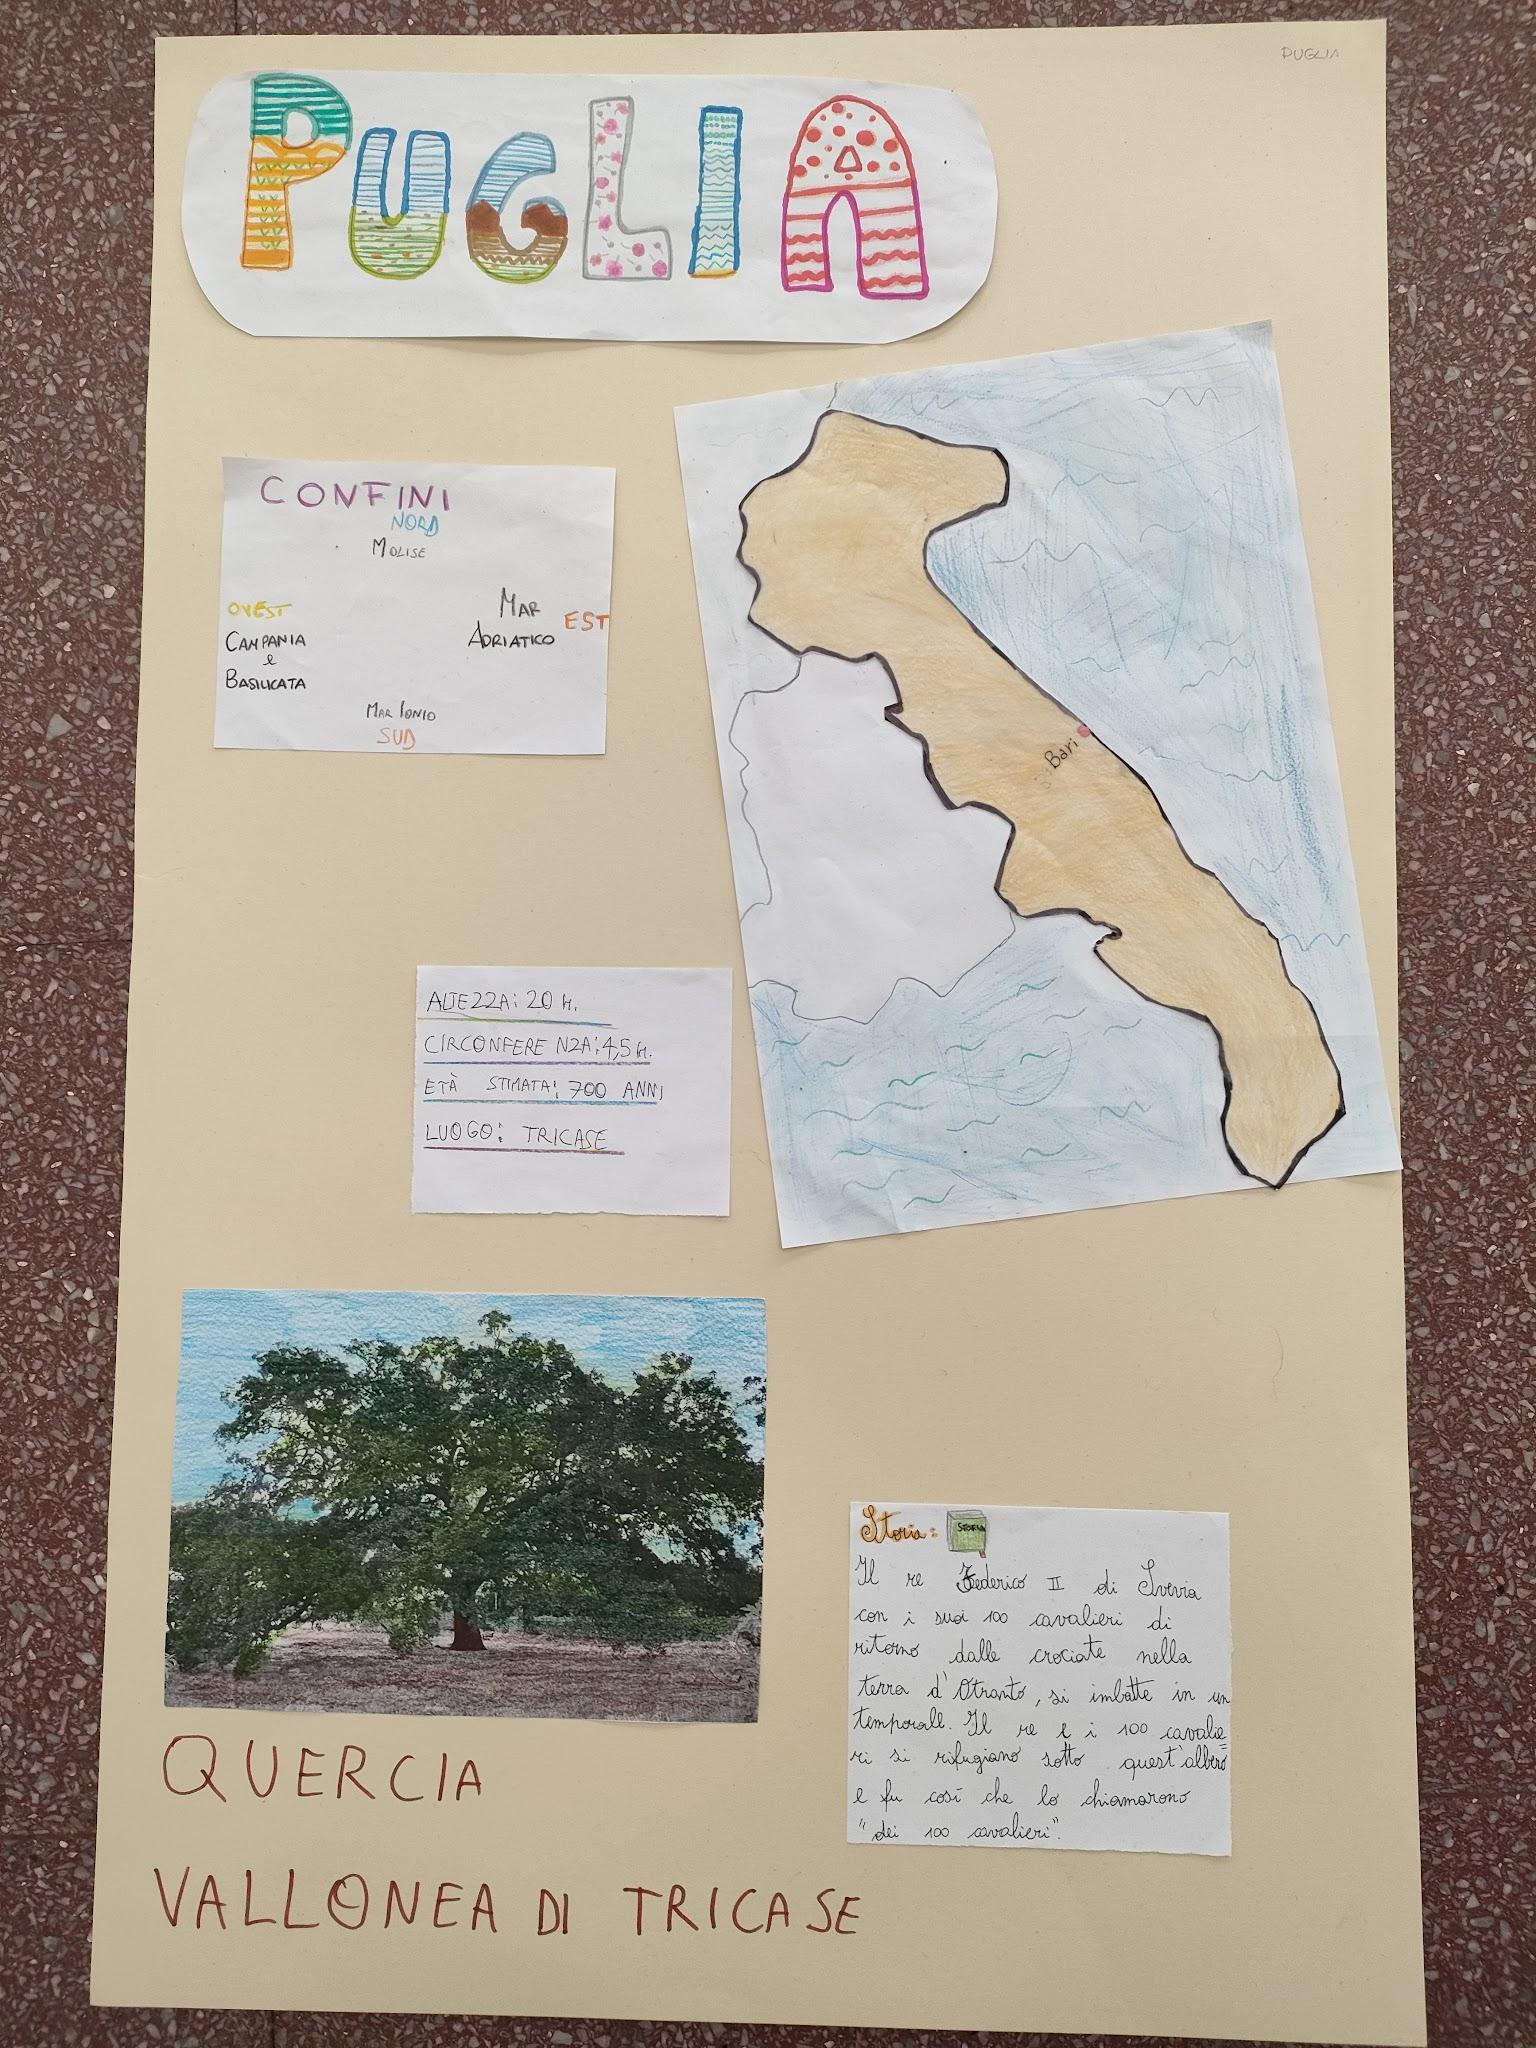 PUGLIA
PUGLIA
CONFINI
NORD
MOLISE
OVEST
CAMPANIA
e
BASILICATA
MAR
ADRIATICO
EST
MAR IONIO
SUD
Bari
ALTEZZA: 20 M.
CIRCONFERENZA: 4,5 M.
ETÀ STIMATA: 700 ANNI
LUOGO: TRICASE
QUERCIA
VALLONEA DI TRICASE
Storia:
STORIA
Il re Federico II di Svevia
con i suoi 100 cavalieri di
ritorno dalle crociate nella
terra d'Otranto, si imbatte in un
temporale. Il re e i 100 cavalie=
ri si rifugiano sotto quest'albero
e fu così che lo chiamarono
"dei 100 cavalieri".